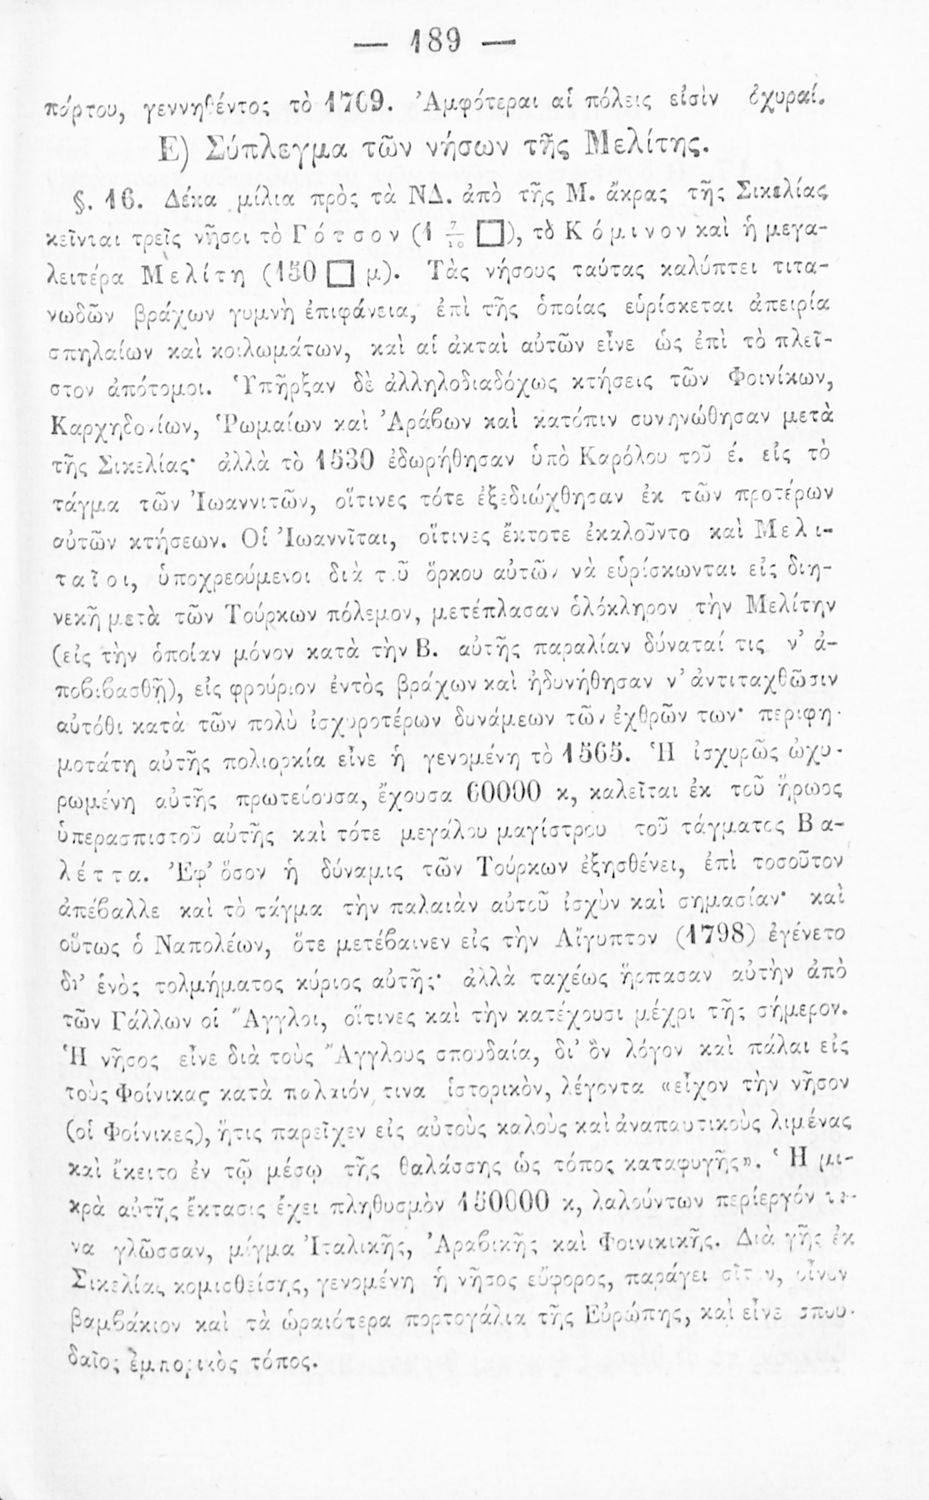 — 189 —
πόρτου, γεννηθέντος τὸ 1769. Ἀμφότεραι αἱ πόλεις εἰσὶν ὀχυραί.
Ε) Σύπλεγμα τῶν νήσων τῆς Μελίτης.
§. 16. Δέκα μίλια πρὸς τὰ ΝΔ. ἀπὸ τῆς Μ. ἄκρας τῆς Σικελίας
κεῖνται τρεῖς νῆσοι τὸ Γότσον (1 7/10 □), τὸ Κόμινον καὶ ἡ μεγα-
λειτέρα Μελίτη (150 □ μ). Τὰς νήσους ταύτας καλύπτει τιτα-
νωδῶν βράχων γυμνὴ ἐπιφάνεια, ἐπὶ τῆς ὁποίας εὑρίσκεται ἀπειρία
σπηλαίων καὶ κοιλωμάτων, καὶ αἱ ἀκταὶ αὐτῶν εἶνε ὡς ἐπὶ τὸ πλεῖ-
στον ἀπότομοι. Ὑπῆρξαν δὲ ἀλληλοδιαδόχως κτήσεις τῶν Φοινίκων,
Καρχηδονίων, Ῥωμαίων καὶ Ἀράβων καὶ κατόπιν συνηνώθησαν μετὰ
τῆς Σικελίας· ἀλλὰ τὸ 1530 ἐδωρήθησαν ὑπὸ Καρόλου τοῦ έ. εἰς τὸ
τάγμα τῶν Ἰωαννιτῶν, οἵτινες τότε ἐξεδιώχθησαν ἐκ τῶν προτέρων
αὐτῶν κτήσεων. Οἱ Ἰωαννῖται, οἵτινες ἔκτοτε ἐκαλοῦντο καὶ Μελι-
ταῖοι, ὑποχρεούμενοι διὰ τοῦ ὅρκου αὐτῶν νὰ εὑρίσκωνται εἰς διη-
νεκῆ μετὰ τῶν Τούρκων πόλεμον, μετέπλασαν ὁλόκληρον τὴν Μελίτην
(εἰς τὴν ὁποίαν μόνον κατὰ τὴν Β. αὐτῆς παραλίαν δύναταί τις ν' ἀ-
ποβιβασθῇ), εἰς φρούριον ἐντὸς βράχων καὶ ἠδυνήθησαν ν' ἀντιταχθῶσιν
αὐτόθι κατὰ τῶν πολὺ ἰσχυροτέρων δυνάμεων τῶν ἐχθρῶν των· περιφη-
μοτάτη αὐτῆς πολιορκία εἶνε ἡ γενομένη τὸ 1565. Ἡ ἰσχυρῶς ὠχυ-
ρωμένη αὐτῆς πρωτεύουσα, ἔχουσα 60000 κ, καλεῖται ἐκ τοῦ ἥρωος
ὑπερασπιστοῦ αὐτῆς καὶ τότε μεγάλου μαγίστρου τοῦ τάγματος Βα-
λέττα. Ἐφ' ὅσον ἡ δύναμις τῶν Τούρκων ἐξησθένει, ἐπὶ τοσοῦτον
ἀπέβαλλε καὶ τὸ τάγμα τὴν παλαιὰν αὐτοῦ ἰσχὺν καὶ σημασίαν· καὶ
οὕτως ὁ Ναπολέων, ὅτε μετέβαινεν εἰς τὴν Αἴγυπτον (1798) ἐγένετο
δι' ἑνὸς τολμήματος κύριος αὐτῆς· ἀλλὰ ταχέως ἥρπασαν αὐτὴν ἀπὸ
τῶν Γάλλων οἱ Ἄγγλοι, οἵτινες καὶ τὴν κατέχουσι μέχρι τῆς σήμερον.
Ἡ νῆσος εἶνε διὰ τοὺς Ἄγγλους σπουδαία, δι' ὃν λόγον καὶ πάλαι εἰς
τοὺς Φοίνικας κατὰ παλαιόν τινα ἱστορικὸν, λέγοντα «εἶχον τὴν νῆσον
(οἱ Φοίνικες), ἥτις παρεῖχεν εἰς αὐτοὺς καλοὺς καὶ ἀναπαυτικοὺς λιμένας
καὶ ἔκειτο ἐν τῷ μέσῳ τῆς θαλάσσης ὡς τόπος καταφυγῆς». Ἡ μι-
κρὰ αὐτῆς ἔκτασις ἔχει πληθυσμὸν 150000 κ, λαλούντων περίεργόν τι-
να γλῶσσαν, μίγμα Ἰταλικῆς, Ἀραβικῆς καὶ Φοινικικῆς. Διὰ γῆς ἐκ
Σικελίας κομισθείσης, γενομένη ἡ νῆσος εὔφορος, παράγει σῖτον, οἶνον
βαμβάκιον καὶ τὰ ὡραιότερα πορτογάλια τῆς Εὐρώπης, καὶ εἶνε σπου-
δαῖος ἐμπορικὸς τόπος.